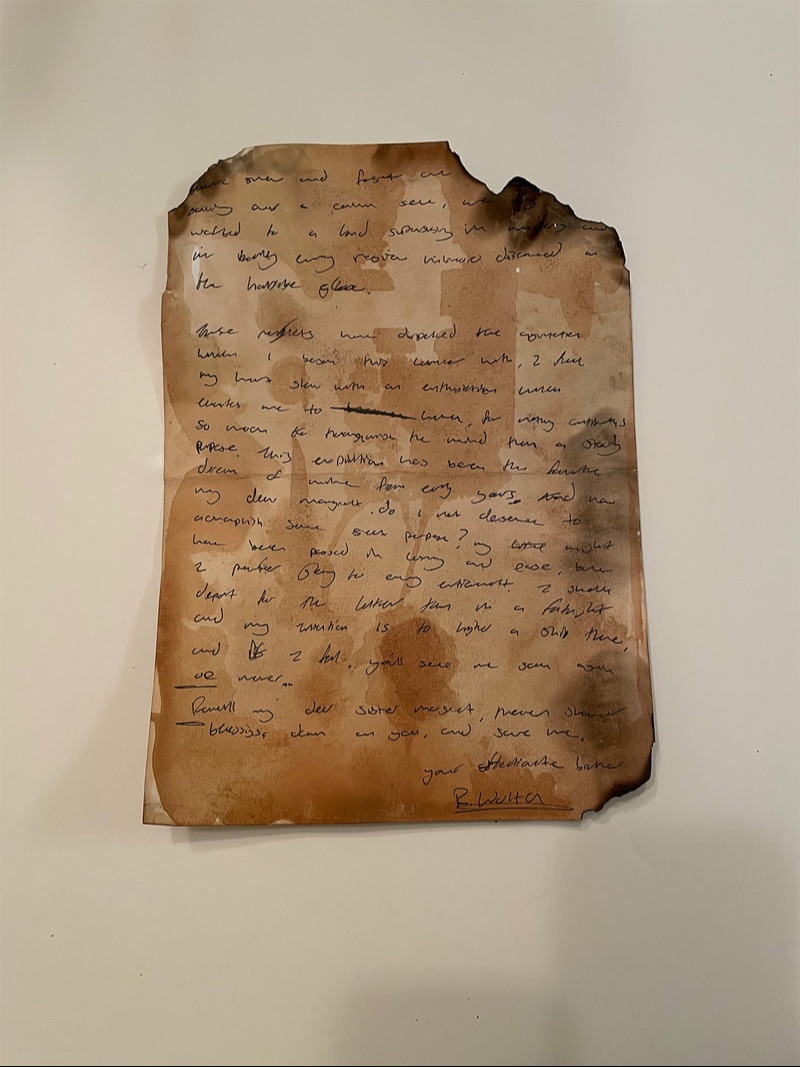 snow and frost are
sailing over a calm sea, we
wafted to a land surpassing in
in beauty every region hitherto discovered on
the habitable globe.
These reflections have dispelled the agitation
which I began this letter with, I feel
my heart glow with an enthusiasm which
elevates me to heaven, for nothing contributes
so much to tranquilise the mind than a steady
purpose. This expedition has been the favorite
dream of mine from early years. And now
my dear margaret. do I not deserve to
accomplish some great purpose? my life might
have been passed in luxury and ease, but
I prefer glory to every enticement. I shall
depart for the latter town in a fortnight
and my intention is to hire a ship there,
and if I fail, you'll see me soon again
or never...
Farewell my dear sister margaret, heaven shower
blessings down on you, and save me.
your affectionate brother
R. Walton